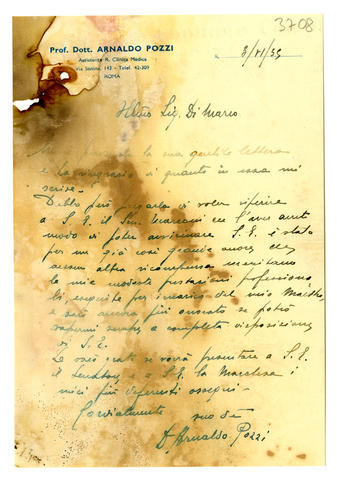 3708
Prof. Dott. ARNALDO POZZI
Assistente R. Clinica Medica
Via Sistina, 143 - Telef. 42-309
ROMA
3/VI/35
Sig. Di Marco
la sua gentile lettera
e La ringrazio di quanto in essa mi
scrive.
Debbo però pregarla di voler riferire
a S. E. il Sen. Marconi che l'aver avuto
modo di poter avvicinare S. E. è stato
per me già così grande onore che
nessun altra ricompensa meritano
le mie modeste prestazioni professiona
li, eseguite per incarico del mio Maestro,
e sarò ancora più onorato se potrò
sapermi sempre a completa disposizione
di S. E.
Le sarò grato se vorrà presentare a S. E.
il e a S. E. la Marchesa i
miei più deferenti ossequi.
Cordialmente suo
D. Arnaldo Pozzi